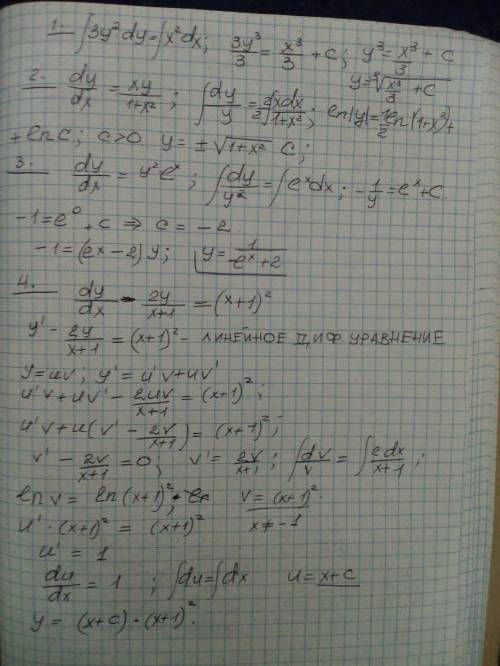 1. ∫3y²dy=∫x²dx; 3y³/3 = x³/3 + c; y³ = x³/3 + c
y = ∛(x³/3 + c)
2. dy/dx = xy/(1+x²); ∫dy/y = ∫2xdx/2(1+x²); ln|y| = 1/2 ln(1+x²)+
+ ln C; C>0 y = ±√(1+x²) C;
3. dy/dx = y²eˣ; ∫dy/y² = ∫eˣdx; -1/y = eˣ+C.
-1 = e⁰ + c ⇒ c = -2
-1 = (eˣ-2) y; y = 1/(-eˣ+2)
4. dy/dx - 2y/(x+1) = (x+1)²
y' - 2y/(x+1) = (x+1)² - ЛИНЕЙНОЕ ДИФ. УРАВНЕНИЕ
y = uv; y' = u'v + uv'
u'v + uv' - 2uv/(x+1) = (x+1)²;
u'v + u(v' - 2v/(x+1)) = (x+1)²;
v' - 2v/(x+1) = 0; v' = 2v/(x+1); ∫dv/v = ∫2dx/(x+1);
ln v = ln(x+1)²; v = (x+1)².
x ≠ -1
u'·(x+1)² = (x+1)²
u' = 1
du/dx = 1; ∫du = ∫dx u = x+c
y = (x+c)·(x+1)².